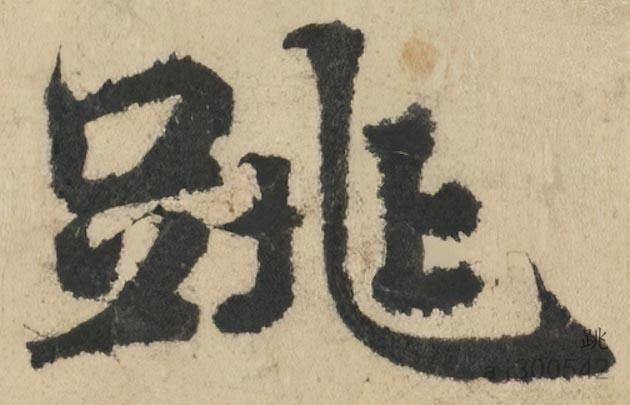 跳
跳
a1300542